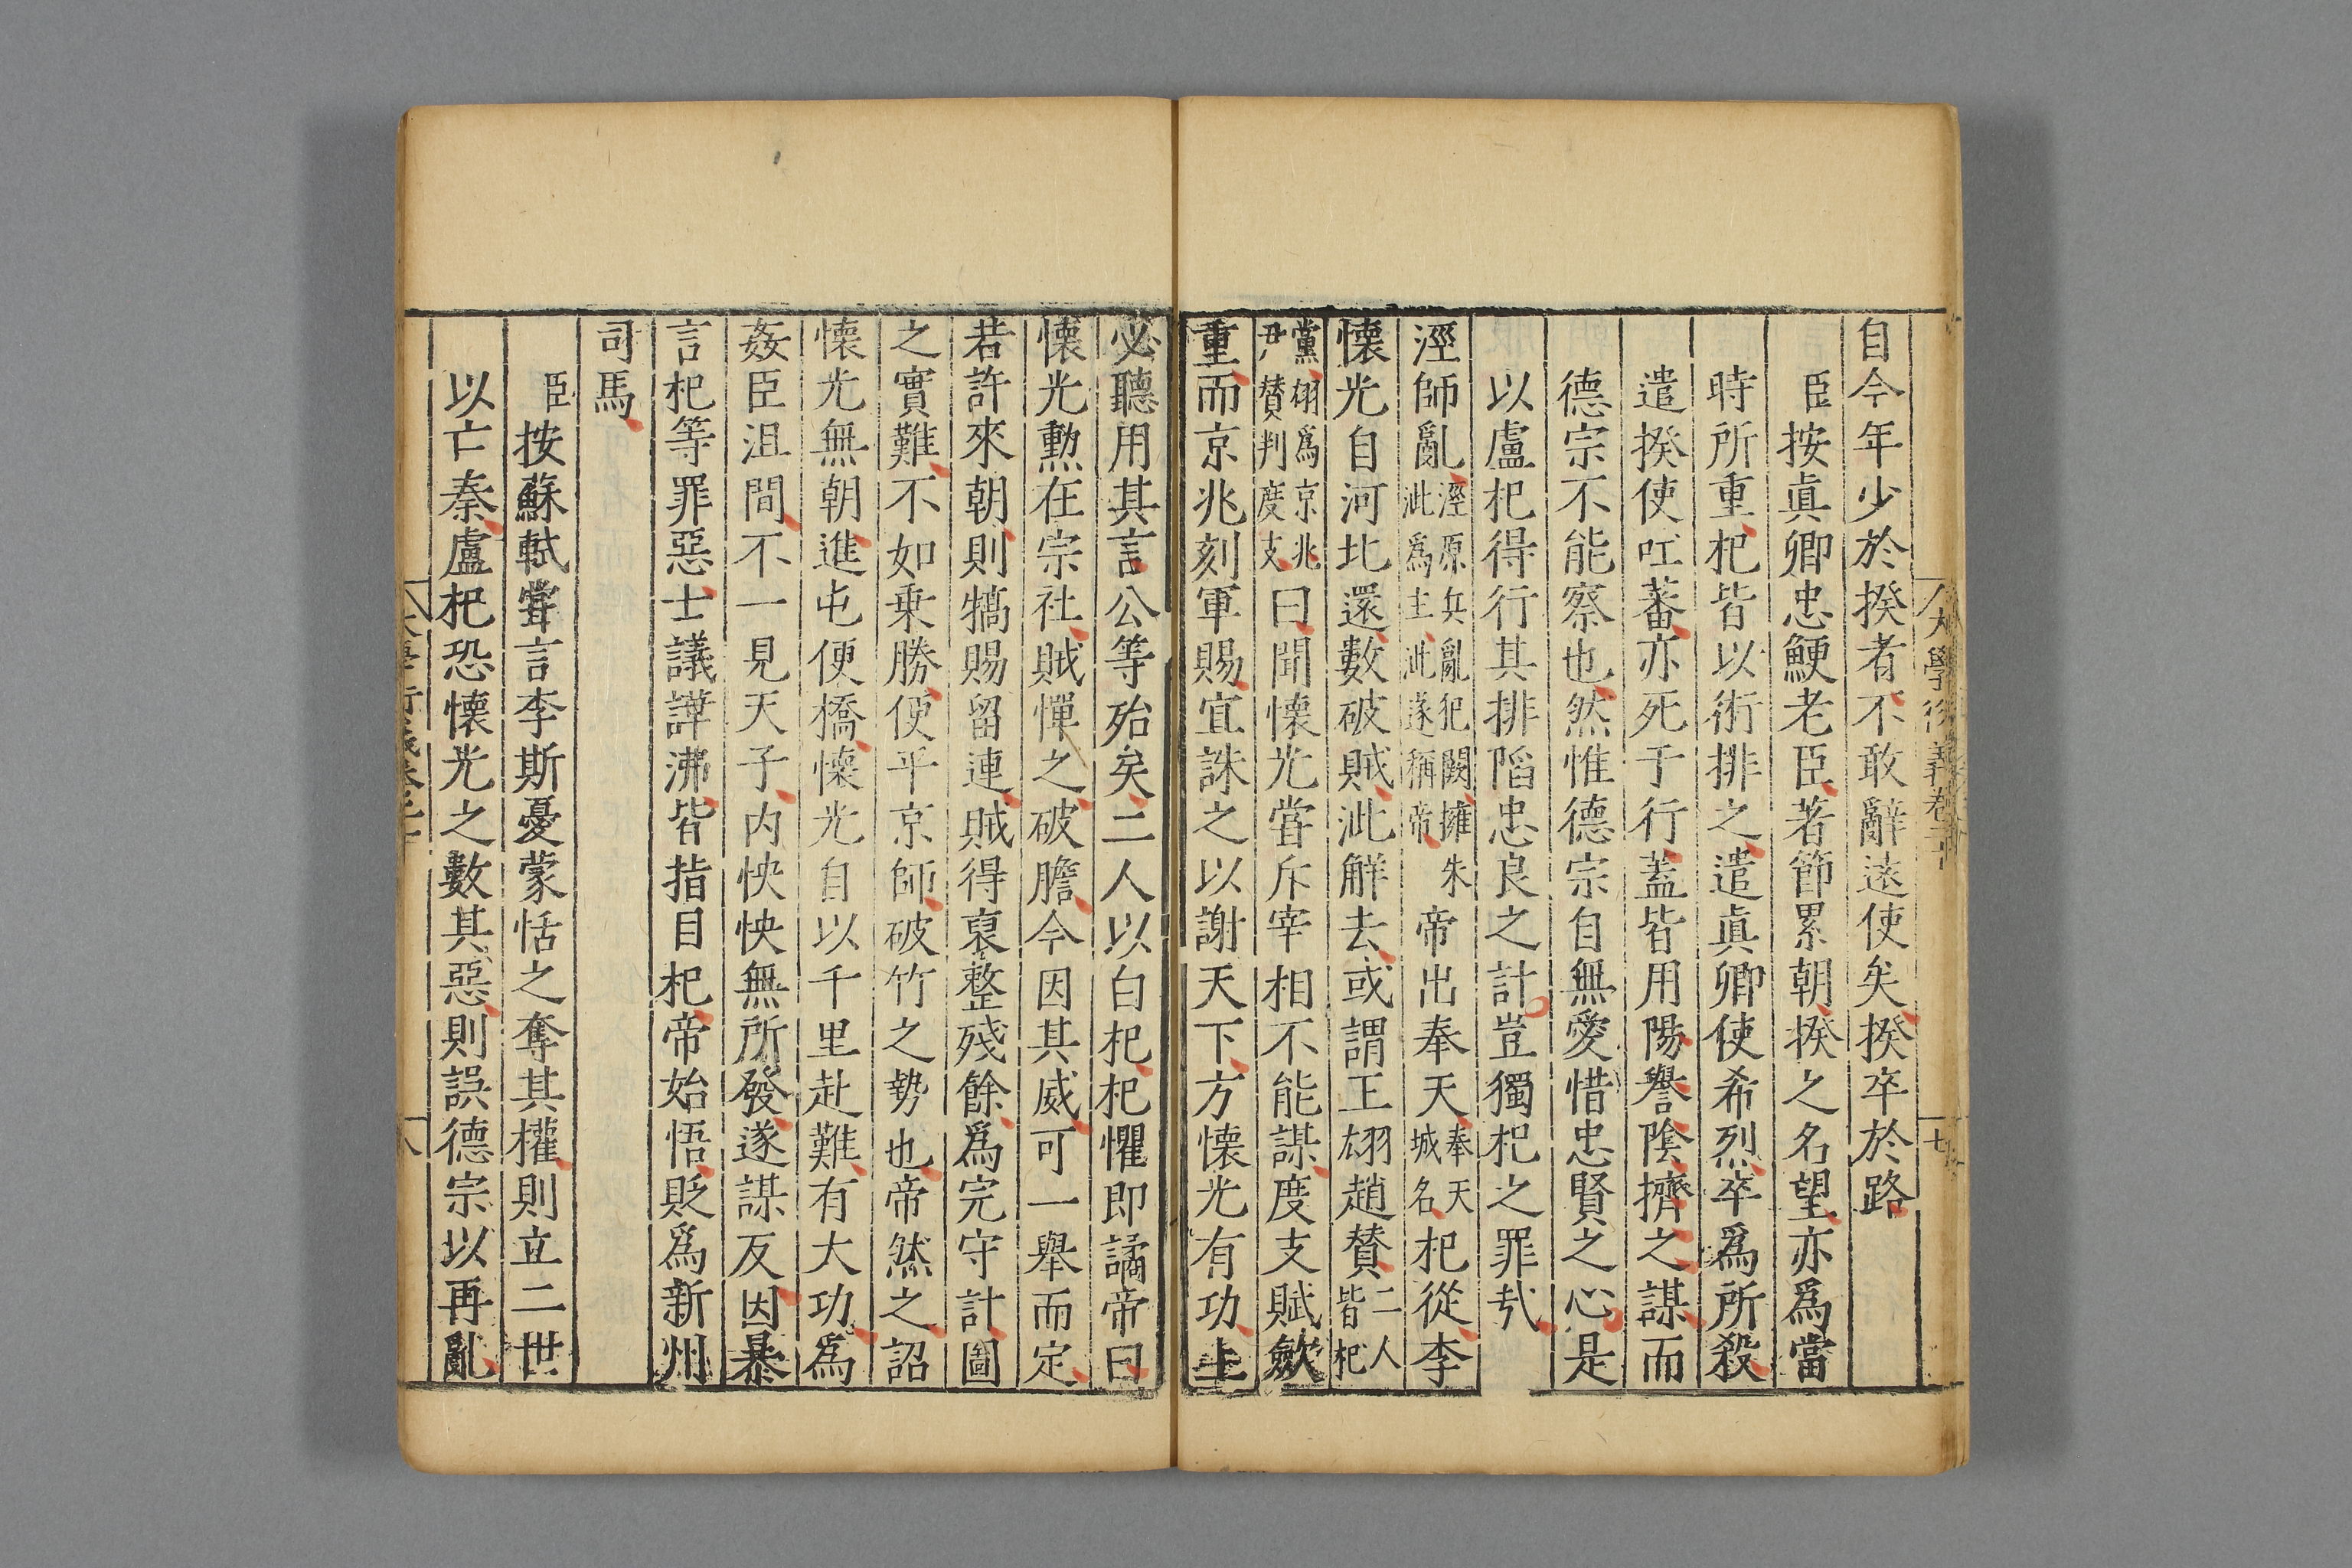 大學衍義卷二十
七
自今年少於揆者不敢辭遠使矣揆卒於路
臣按眞卿忠鯁老臣著節累朝揆之名望亦爲當
時所重杞皆以術排之遣眞卿使希烈卒爲所殺
遣揆使吐蕃亦死于行蓋皆用陽譽陰擠之謀而
德宗不能察也然惟德宗自無愛惜忠賢之心是
以盧杞得行其排陷忠良之計豈獨杞之罪㢤
涇師亂涇原兵亂犯闕擁朱泚爲主泚遂稱帝帝出奉天奉天城名杞從李
懷光自河北還數破賊泚解去或謂王翃趙贊二人皆杞
黨翃爲京兆尹贊判度支曰聞懷光甞斥宰相不能謀度支賦斂
重而京兆刻軍賜宜誅之以謝天下方懷光有功上
必聽用其言公等殆矣二人以白杞杞懼即譎帝曰
懷光勲在宗社賊憚之破膽今因其威可一舉而定
若許來朝則犒賜留連賊得裒整殘餘爲完守計圖
之實難不如乗勝便平京師破竹之勢也帝然之詔
懷光無朝進屯便橋懷光自以千里赴難有大功爲
姦臣沮間不一見天子内怏怏無所發遂謀反因暴
言杞等罪惡士議譁沸皆指目杞帝始悟貶爲新州
司馬
臣按蘇軾甞言李斯憂蒙恬之奪其權則立二世
以亡秦盧杞恐懷光之數其惡則誤德宗以再亂
八